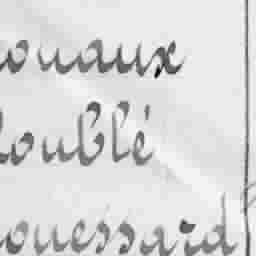 ouaux
oublé
ouessard